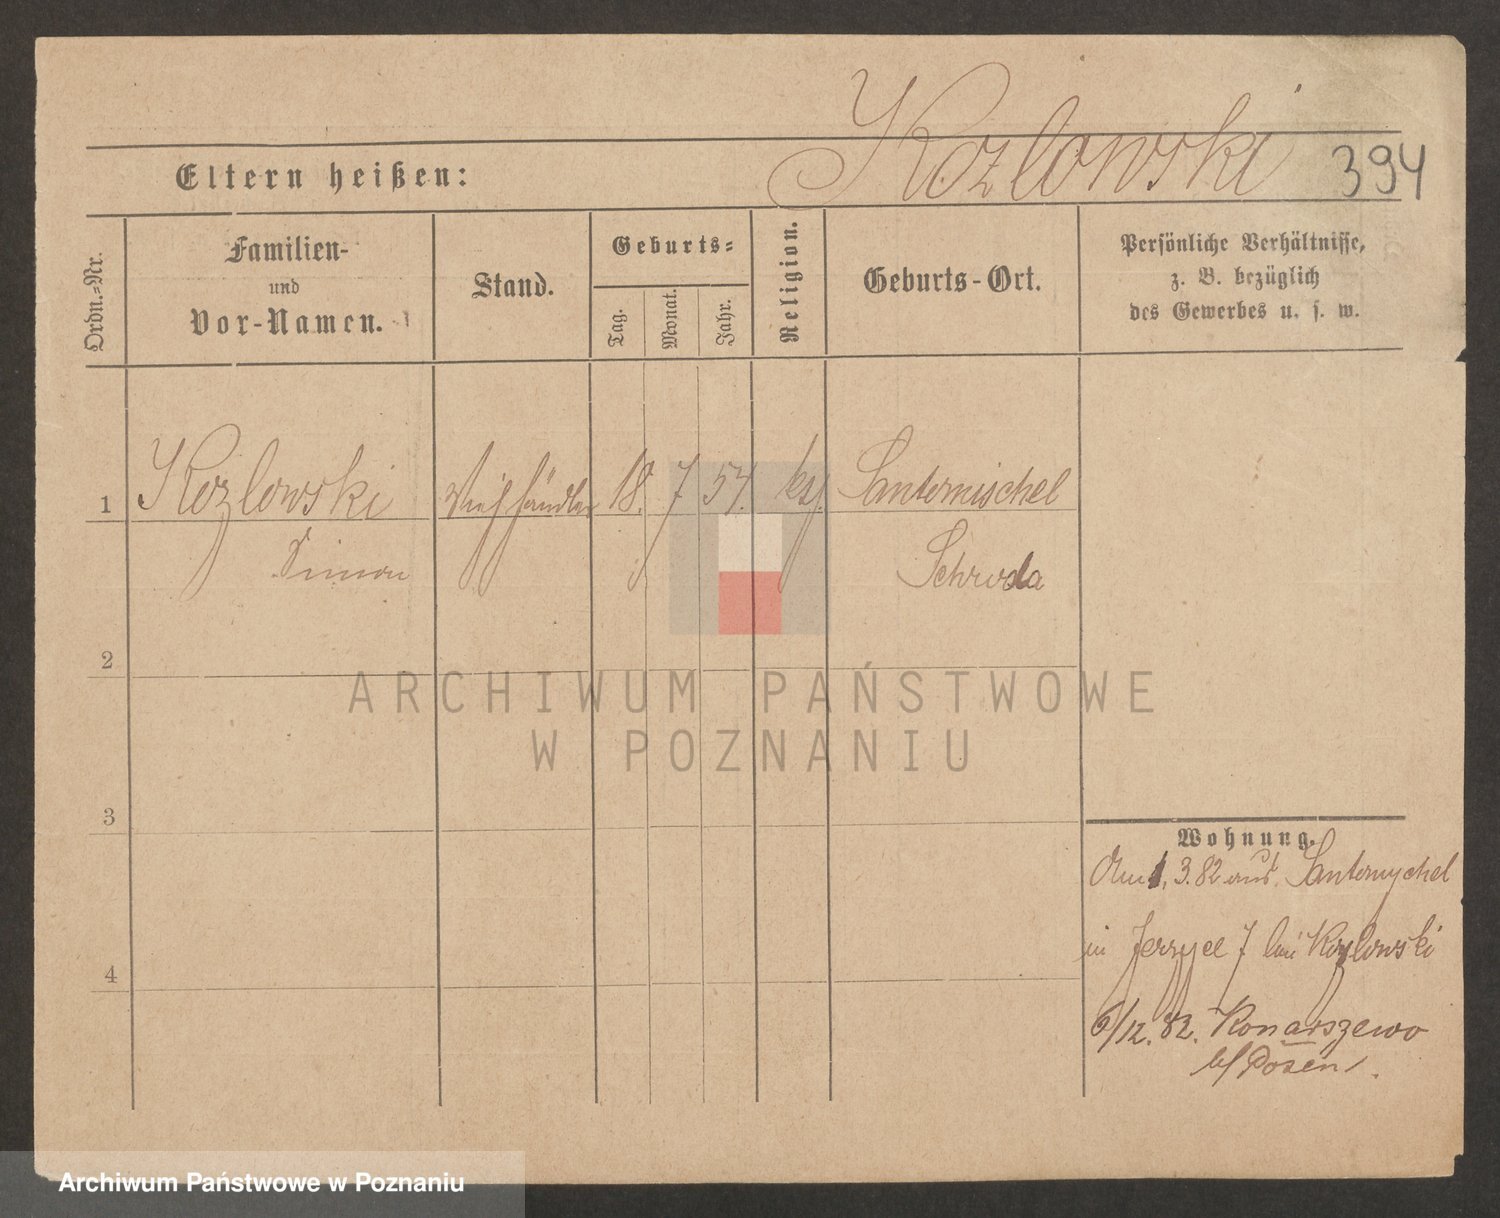 Kozlowski
394
Eltern heißen:
Ordn.-Nr.
Familien-
und
Vor-Namen.
Stand.
Geburts-
Tag.
Monat.
Jahr.
Religion.
Geburts-Ort.
Persönliche Verhältnisse,
z. B. bezüglich
des Gewerbes u. s. w.
1 Kozlowski Viehhändler 18. 7 54. Santomischel
Simon Schroda
2
3
4
ARCHIWUM PAŃSTWOWE
W POZNANIU
Wohnung.
Am 1. 3. 82 aus Santomychel
in Jerzyce 7 bei Kozlowski
6/12. 82. Konarszewo
b/ Posen.
Archiwum Państwowe w Poznaniu